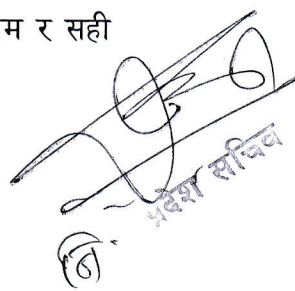 म र सही
प्रदेश सचिव
नि.